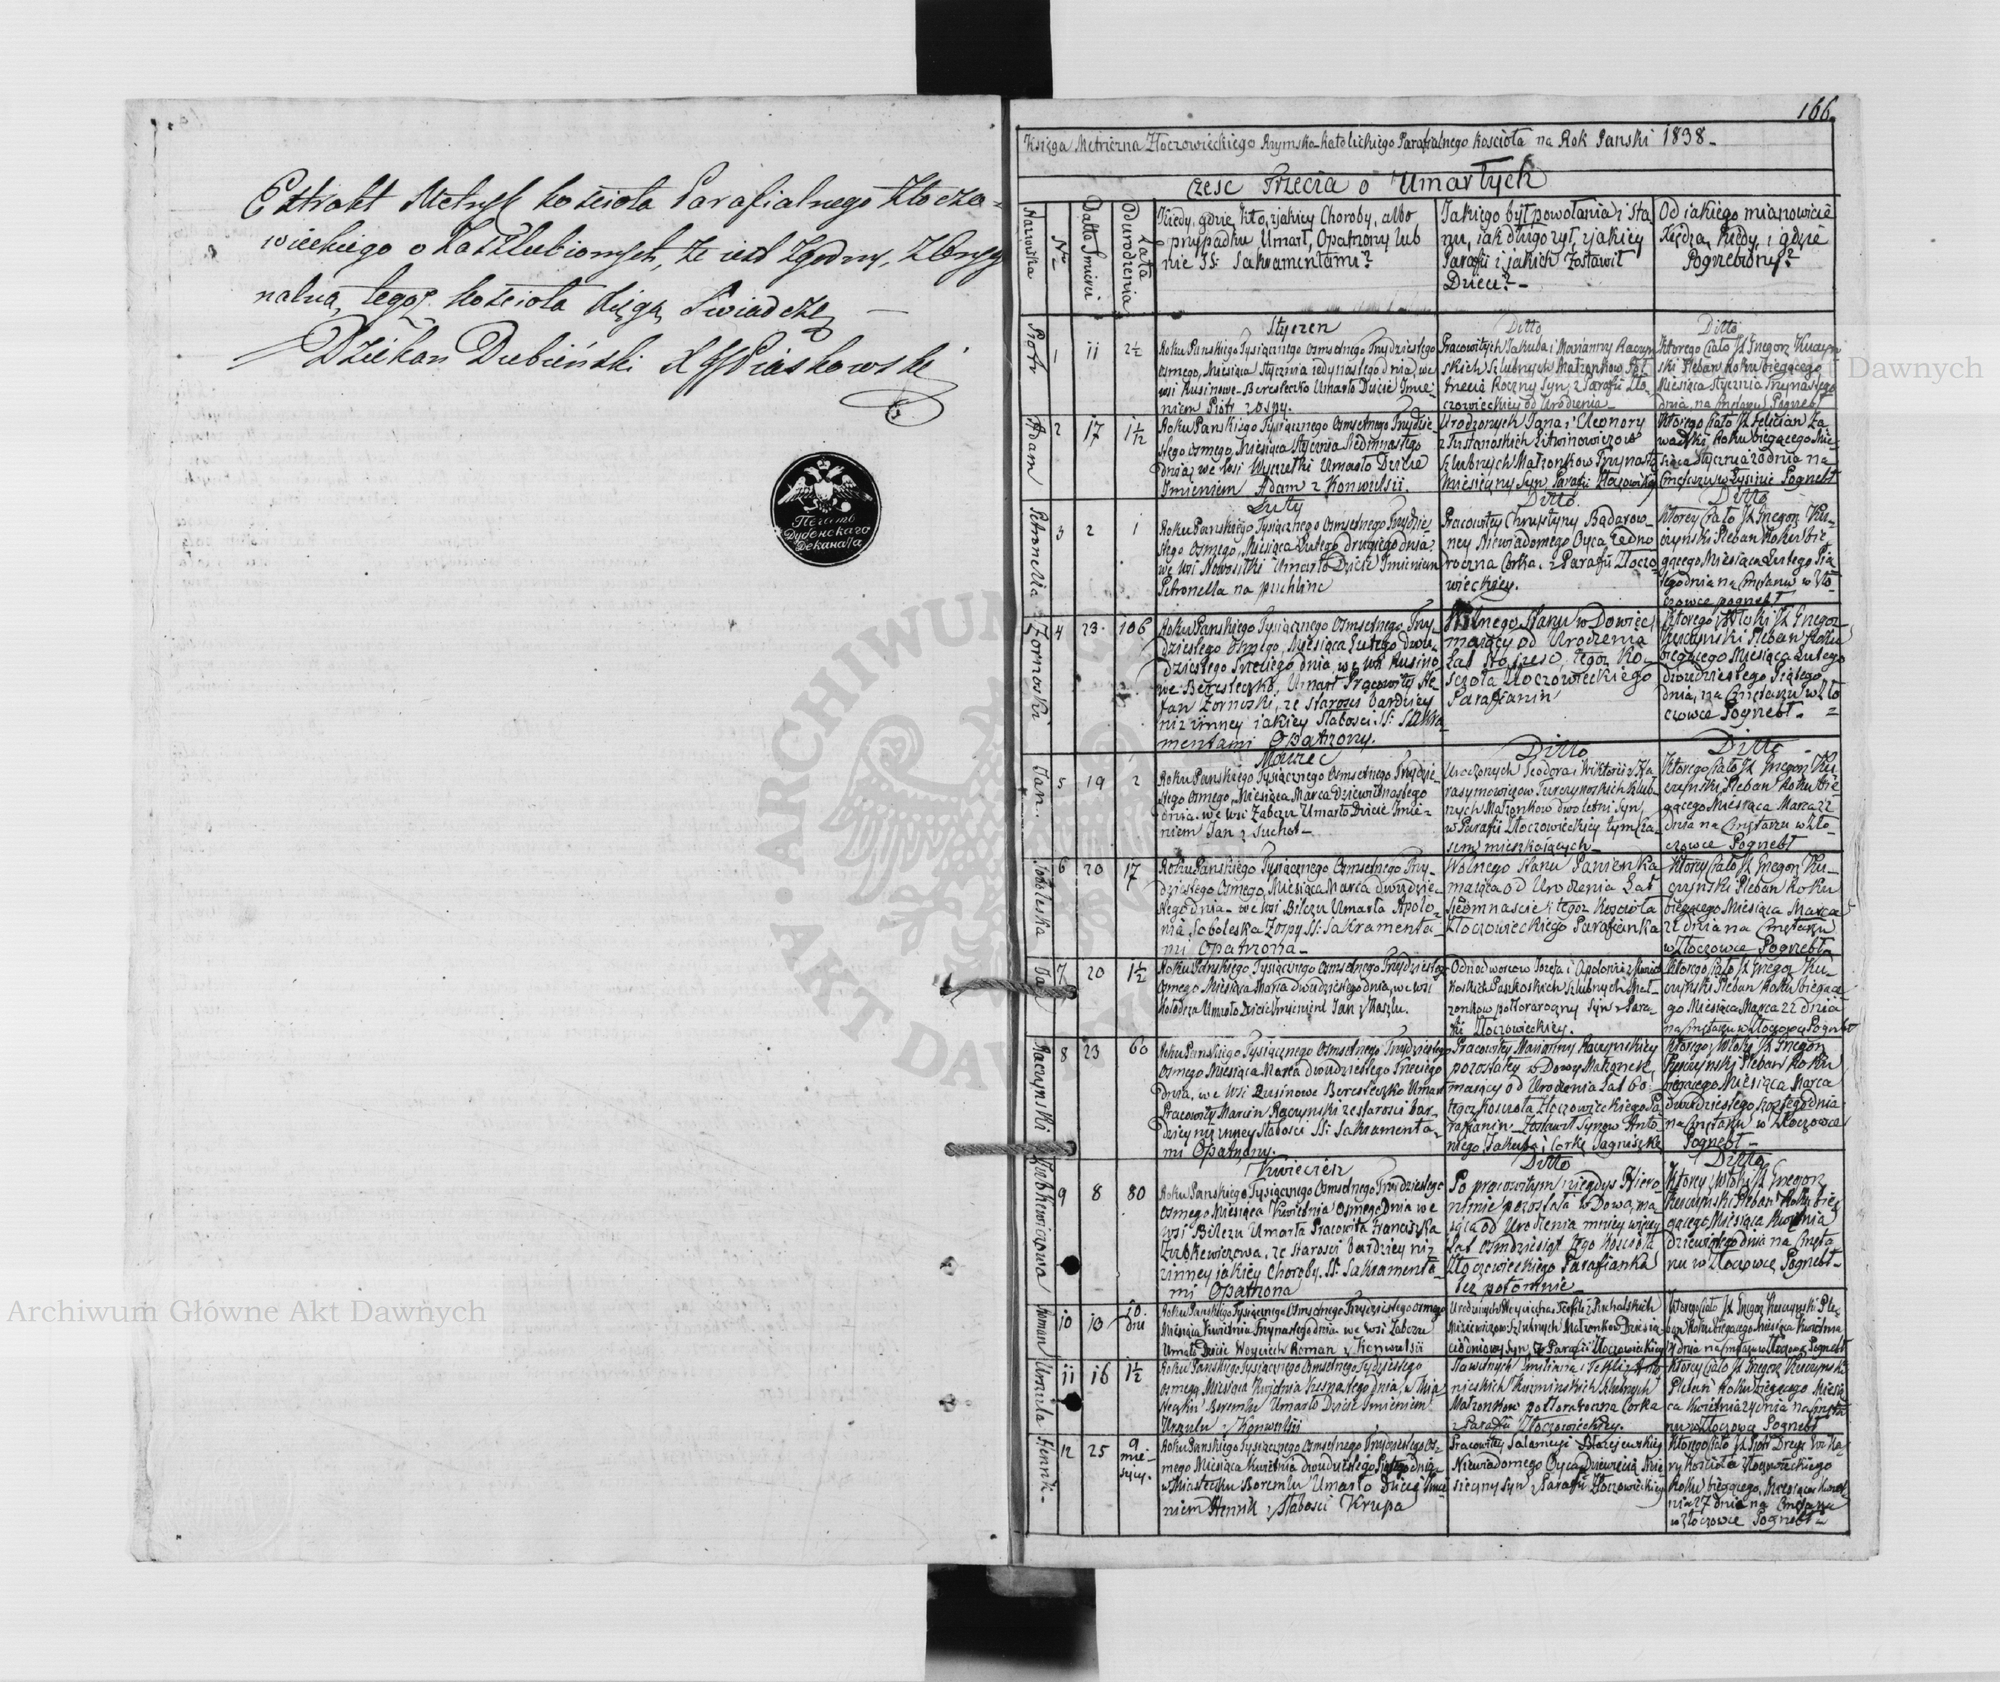 Extrakt Metryk kościoła Parafialnego Złoczo-
wieckiego o Zaszlubionych, że iest zgodny, z Orygi-
nalną tegoż kościoła Xięgą Świadczę
Dziekan Dubieński
Печать
Дубенскаго
Деканата
166
Księga Metriczna Złoczowieckiego Rzymsko-Katolickiego Parafialnego kościoła na Rok Panski 1838
Częsc Trzecia o Umarłych
Nazwiska
Nr
Datto Smierci
Lata od urodzenia
Kiedy, gdzie, kto, z jakiey Choroby, albo
przypadku Umarł, Opatrzony lub
nie SS: Sakramentami?
Jakiego był powołania i sta
nu, jak długo żył, z jakiey
Parafii i jakich zostawił
Dzieci?
Od iakiego mianowicie
Xiędza, kiedy, i gdzie
Pogrzebiony?
Styczen
Ditto
Ditto
Piotr
1
11
2½
Roku Panskiego Tysiącznego Osmsetnego Trzydziestego
Osmego, Miesiąca Stycznia iedynastego dnia, we
wsi Rusinowe-Beresteczko Umarło Dziecie Imie-
niem Piotr z ospy.
Pracowitych Jakuba i Marianny Raczyn
skich Szlubnych Małżonkow
Roczny Syn, z Parafii Zło-
czowieckiey od Urodzenia
Ktorego Ciało JX Gregorz Kuczyn
ski Pleban Roku bieżącego
Miesiąca Stycznia Trzynastego
dnia, na Pogrzebł
Adam
2
17
1½
Roku Panskiego Tysiącznego Osmsetnego Trzydzie
stego Osmego, Miesiąca Stycznia Siedmnastego
dnia, we wsi Umarło Dziecie
Imieniem Adam z Konwulsii.
Urodzonych Jana i Eleonory
Litwinowiczow
Szlubnych Małżonkow
Miesięczny Syn Parafii Złoczowieckiey
Ktorego Ciało JX Felician
Roku bieżącego Mie
siąca Stycznia 20 dnia na
Cmętarzu w Pogrzebł
Luty
Ditto
Ditto
Petronella
3
2
1
Roku Panskiego Tysiącznego Osmsetnego Trzydzie-
stego Osmego, Miesiąca Lutego drugiego dnia,
we wsi Nowosiłki Umarło Dziecie Imieniem
Petronella na puchline
Pracowitey Chrystyny Bądarow-
ney Niewiadomego Oyca Jedno
roczna Corka, z Parafii Złoczo
wieckiey.
Ktorey Ciało JX Gregorz Ku-
czynski Pleban Roku bie-
żącego Miesiąca Lutego Pią
tego dnia na Cmętarzu w Zło-
czowce pogrzebł
Zornoski
4
23
106
Roku Panskiego Tysiącznego Osmsetnego Trzy-
dziestego Osmego, Miesiąca Lutego dwu-
dziestego trzeciego dnia, we wsi Rusino
we-Beresteczko, Umarł Pracowity Ste-
fan Zornoski, ze starosci bardziey
niż inney iakiey słabosci. SS: Sakra
mentami Opatrzony.
Wolnego Stanu Wdowiec
maiący od Urodzenia
Lat sto szesc, tegoż Ko-
scioła Złoczowieckiego
Parafianin
Ktorego Zwłoki JX Gregorz
Kuczynski Pleban Roku
bieżącego Miesiąca Lutego
dwudziestego Piątego
dnia, na Cmętarzu w Zło
czowce Pogrzebł.
Marzec
Ditto
Ditto
Jan
5
19
2
Roku Panskiego Tysiącznego Osmsetnego Trzydzie-
stego Osmego, Miesiąca Marca dziewietnastego
dnia we wsi Zabcze Umarło Dziecie Imie-
niem Jan z Suchot
Urodzonych Teodora i Wiktorii z Ha
rasymowiczow Turczynoskich Szlub-
nych Małżonkow dwoletni Syn,
w Parafii Złoczowieckiey tymcza-
sem mieszkaiących
Ktorego Ciało JX Gregorz Ku
czynski Pleban Roku bie-
żącego Miesiąca Marca 22
dnia na Cmętarzu w Zło-
czowce Pogrzebł
Soboleska
6
20
17
Roku Panskiego Tysiącznego Osmsetnego Trzy-
dziestego Osmego, Miesiąca Marca dwudzie-
stego dnia we wsi Bilczu Umarła Apolo-
nia Soboleska z ospy SS: Sakramenta-
mi Opatrzona
Wolnego stanu Panienka
maiąca od Urodzenia Lat
siedmnascie tegoż Kościoła
Złoczowieckiego Parafianka
Ktorey Ciało JX Gregorz Ku-
czynski Pleban Roku
bieżącego Miesiąca Marca
22 dnia na Cmętarzu
w Złoczowce Pogrzebł
Jan
7
20
1½
Roku Panskiego Tysiącznego Osmsetnego Trzydziestego
Osmego Miesiąca Marca dwudziestego dnia, we wsi
Kołodeża Umarło Dziecie Imieniem Jan z Kaszlu.
Odnodworcow Jozefa i Apolonii
Paszkoskich Szlubnych Mał-
żonkow połtoraroczny Syn z Para-
fii Złoczowieckiey.
Ktorego Ciało JX Gregorz Ku-
czynski Pleban Roku bieżące-
go Miesiąca Marca 22 dnia
na Cmętarzu w Złoczowce Pogrzebł
Raczynski
8
23
60
Roku Panskiego Tysiącznego Osmsetnego Trzydziestego
Osmego Miesiąca Marca dwudziestego Trzeciego
Dnia, we Wsi Rusinowe Beresteczko Umarł
Pracowity Marcin Raczynski ze starosci bar-
dziey niż inney słabosci SS: Sakramenta-
mi Opatrzony.
Pracowitey Marianny Raczynskiey
pozostałey w Dowy Małżonek,
maiący od Urodzenia Lat 60:
tegoż Kościoła Złoczowieckiego Pa
rafianin zostawił Synow Anto
niego, Jakuba i Corkę Jagnieszkę
Ktorego Zwłoki JX Gregorz
Kuczynski Pleban Roku
bieżącego Miesiąca Marca
dwudziestego szostego dnia
na Cmętarzu w Złoczowce
Pogrzebł
Kwiecień
Ditto
Ditto
Ziubkiewiczowa
9
8
80
Roku Panskiego Tysiącznego Osmsetnego Trzydziestego
Osmego Miesiąca Kwietnia Osmego Dnia we
wsi Bilczu Umarła Pracowita Franciszka
Ziubkiewiczowa, ze starosci bardziey niż
inney jakiey Choroby. SS: Sakramenta-
mi Opatrzona
Po pracowitym niegdys Hiero-
nimie pozostała Wdowa, ma
iąca od Urodzenia mniey więcey
Lat osmdziesiąt tego Kościoła
Złoczowieckiego Parafianka
bez potomnie
Ktorey Zwłoki JX Gregorz
Kuczynski Pleban Roku bie-
żącego, Miesiąca Kwietnia
dziewiątego dnia na Cmęta
rzu w Złoczowce Pogrzebł
Roman
10
13
10.
dni
Roku Panskiego Tysiącznego Osmsetnego Trzydziestego Osmego
Miesiąca Kwietnia Trzynastego dnia we wsi Zabczu
Umarło Dziecie Woyciech Roman z Konwulsii
Szlubnych Małżonkow Dziesią
ciodniowy Syn, z Parafii Złoczowieckiey
Ktorego Ciało JX Gregorz Kuczynski Ple-
ban Roku bieżącego Miesiąca Kwietnia
dnia na Cmętarzu w Złoczowce Pogrzebł
Urszula
11
16
1½
Roku Panskiego Tysiącznego Osmsetnego Trzydziestego
Osmego Miesiąca Kwietnia szesnastego dnia, w Mia
steczku Boremlu Umarło Dziecie Imieniem
Urszula z Konwulsii
Kuzminskich Szlubnych
Małżonkow połtoraroczna Corka
z Parafii Złoczowieckiey.
Ktorey Ciało JX Gregorz Kuczynski
Pleban Roku bieżącego Miesią
ca Kwietnia dnia na Cmęta
rzu w Złoczowce Pogrzebł
Henrik
12
25
9
mie-
sięcy.
Roku Panskiego Tysiącznego Osmsetnego Trzydziestego Os-
mego Miesiąca Kwietnia dwudziestego Piątego dnia
w Miasteczku Boremlu Umarło Dziecie Imie
niem Henrik z słabosci Krupa
Pracowitey Salamei Błażejewskiey
Niewiadomego Oyca Dziewięcio Mie
sięczny Syn z Parafii Złoczowieckiey
Ktorego Ciało JX Piotr Wika
ry Kościoła Złoczowieckiego
Roku bieżącego, Miesiąca Kwiet
nia 27 dnia na Cmętarzu
w Złoczowce Pogrzebł
Archiwum Główne Akt Dawnych
ARCHIWUM GŁÓWNE AKT DAWNYCH